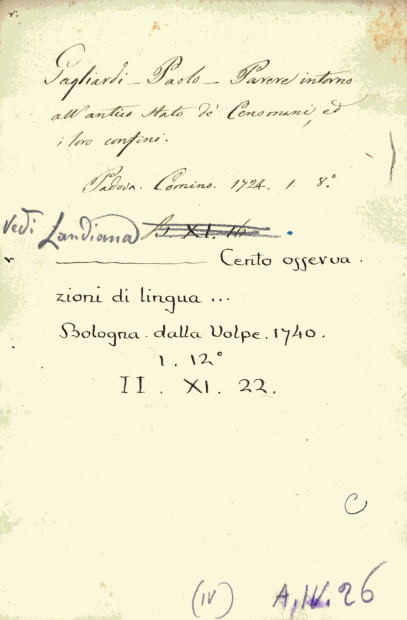 Gagliardi - Paolo - Parere intorno
all'antico stato de' Cenomani, ed
i loro confini.
Padova. Comino. 1724. 1. 8.°
Vedi Landiana B. XI. 
Cento osserva.
zioni di lingua ...
Bologna. dalla Volpe. 1740.
1. 12°
II. XI. 22.
C
(IV) A, IV. 26